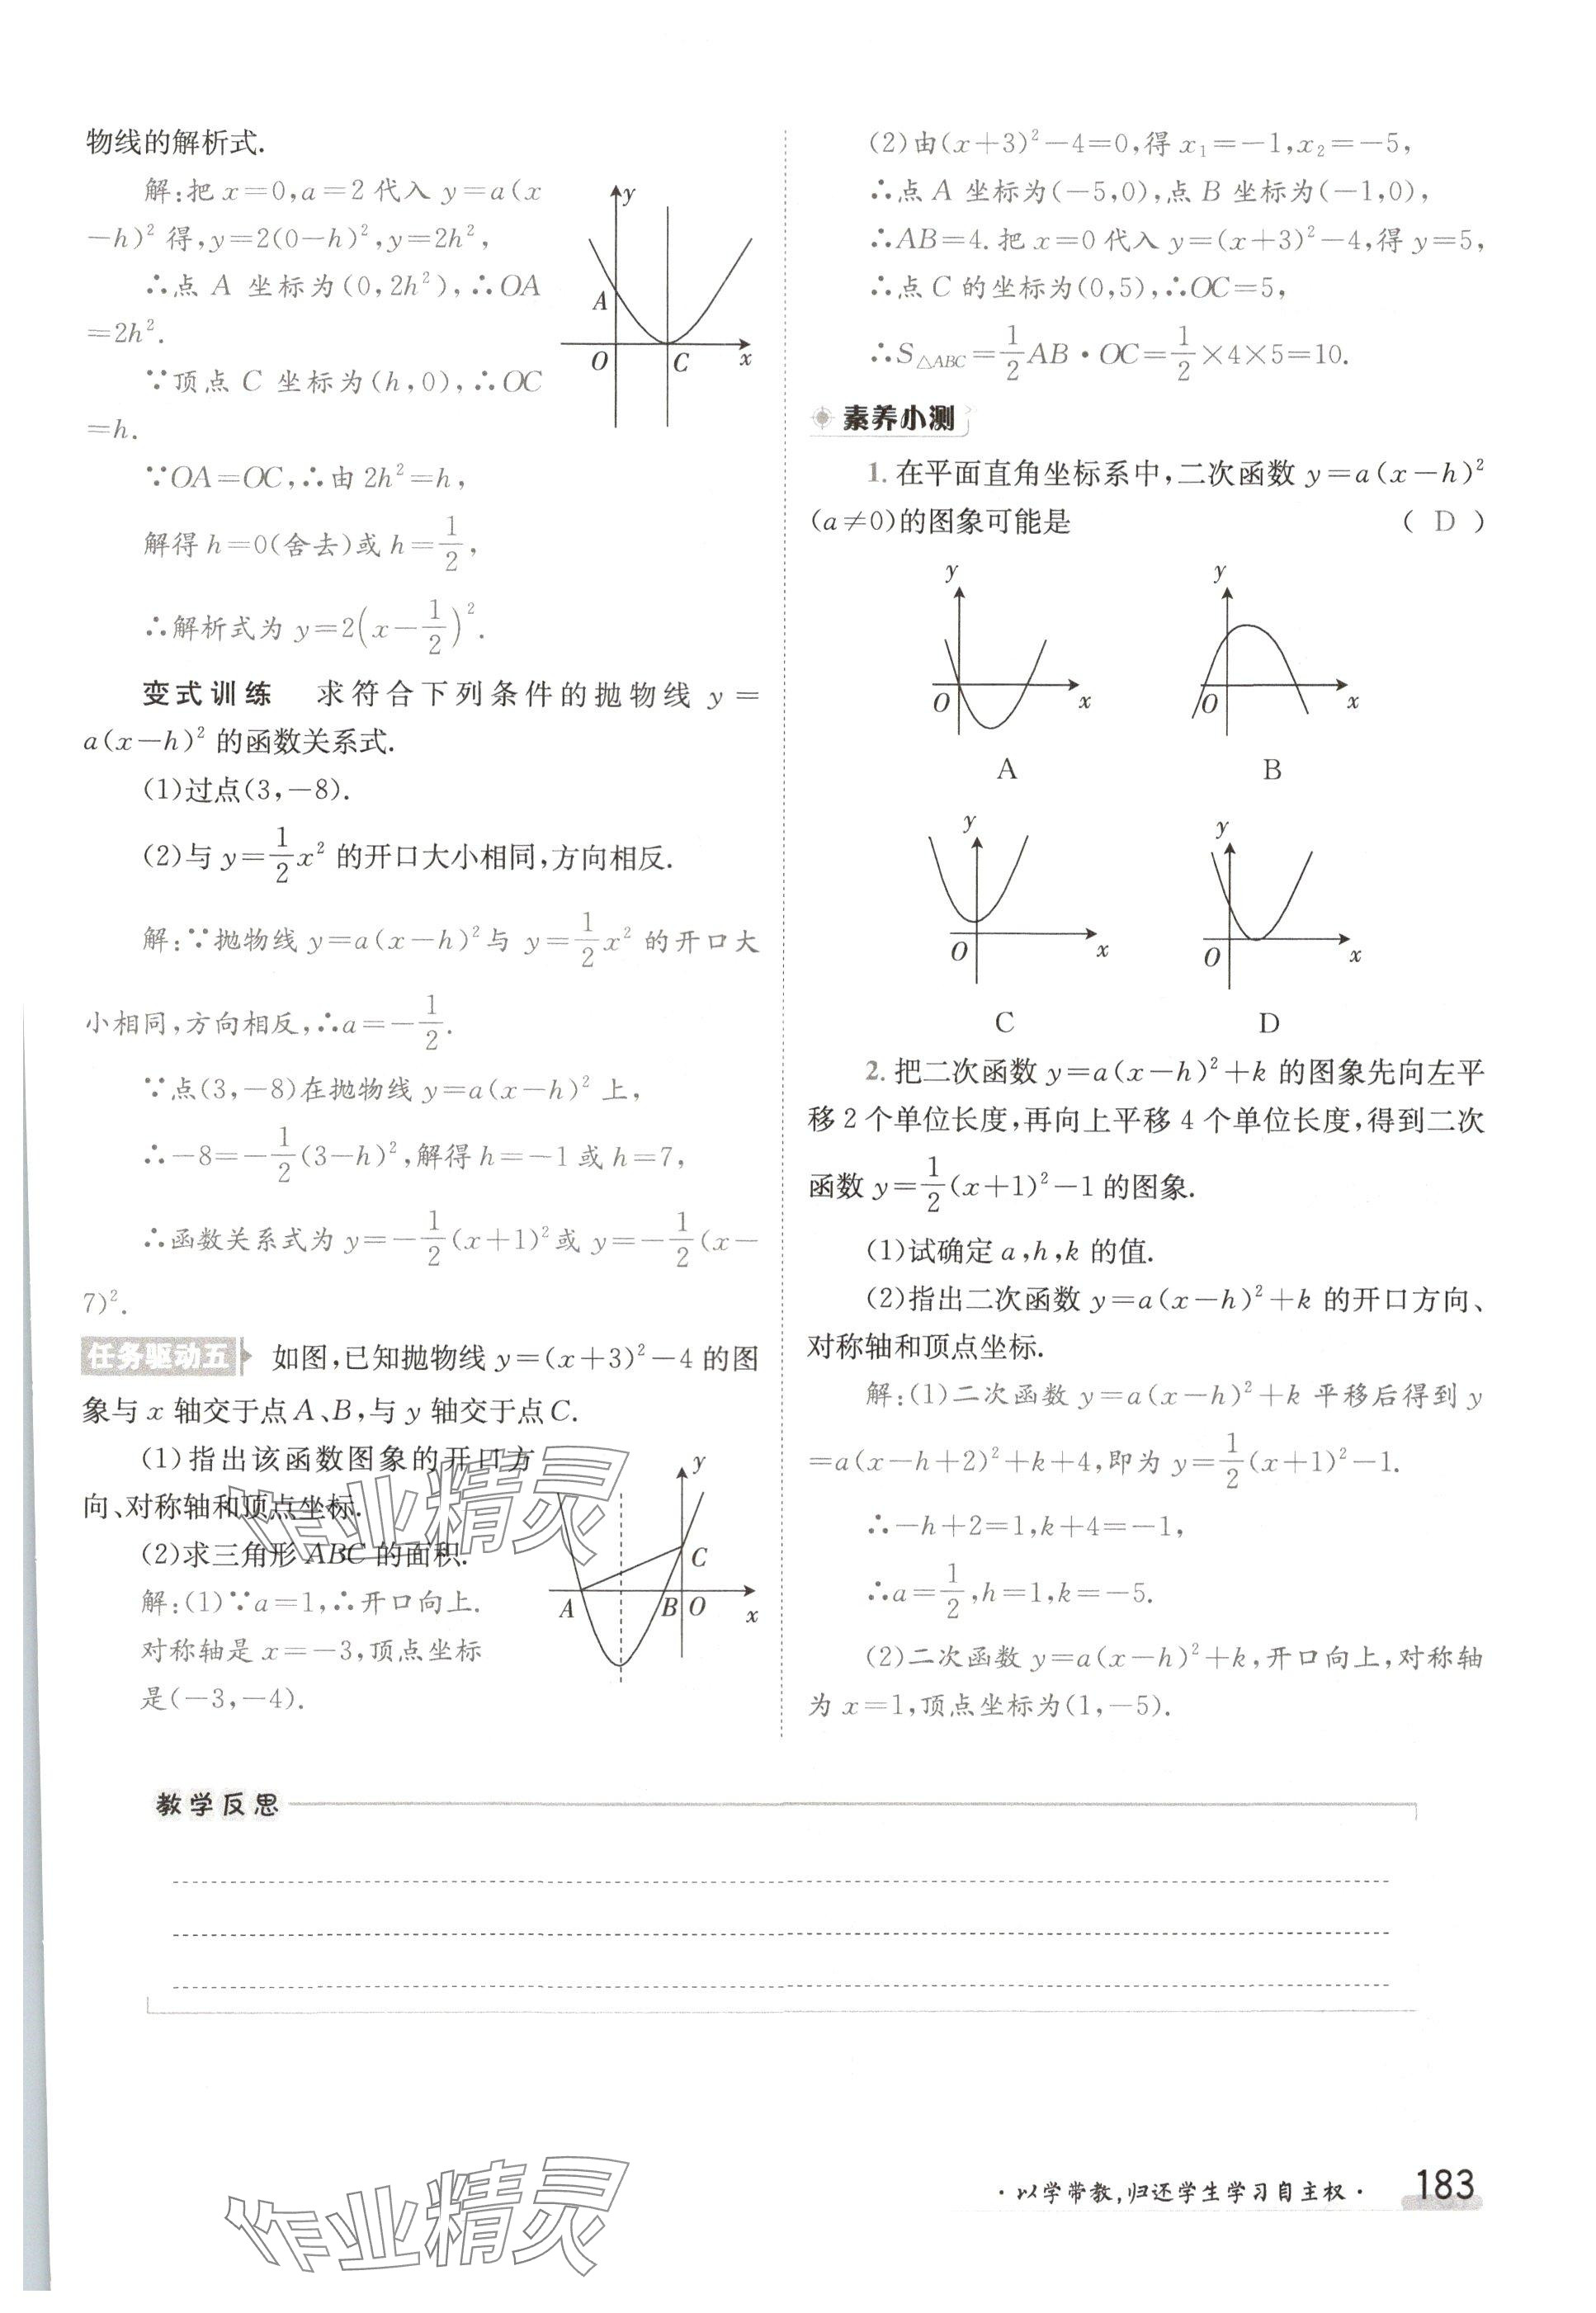 物线的解析式.
解:把 x=0,a=2 代入 y=a(x
-h)² 得,y=2(0-h)²,y=2h²,
∴点 A 坐标为(0,2h²),∴OA
=2h².
∵顶点 C 坐标为(h,0),∴OC
=h.
∵OA=OC,∴由 2h²=h,
解得 h=0(舍去)或 h=1/2,
∴解析式为 y=2(x-1/2)².
y
A
O
C
x
变式训练 求符合下列条件的抛物线 y=
a(x-h)² 的函数关系式.
(1)过点(3,-8).
(2)与 y=1/2x² 的开口大小相同,方向相反.
解:∵抛物线 y=a(x-h)²与 y=1/2x² 的开口大
小相同,方向相反,∴a=-1/2.
∵点(3,-8)在抛物线 y=a(x-h)² 上,
∴-8=-1/2(3-h)²,解得 h=-1 或 h=7,
∴函数关系式为 y=-1/2(x+1)²或 y=-1/2(x-
7)².
任务驱动五 如图,已知抛物线 y=(x+3)²-4 的图
象与 x 轴交于点 A、B,与 y 轴交于点 C.
(1)指出该函数图象的开口方
向、对称轴和顶点坐标.
(2)求三角形 ABC 的面积.
解:(1)∵a=1,∴开口向上.
对称轴是 x=-3,顶点坐标
是(-3,-4).
y
C
A
B
O
x
(2)由(x+3)²-4=0,得 x₁=-1,x₂=-5,
∴点 A 坐标为(-5,0),点 B 坐标为(-1,0),
∴AB=4.把 x=0 代入 y=(x+3)²-4,得 y=5,
∴点 C 的坐标为(0,5),∴OC=5,
∴S△ABC=1/2AB·OC=1/2×4×5=10.
素养小测
1.在平面直角坐标系中,二次函数 y=a(x-h)²
(a≠0)的图象可能是 ( D )
y
O
x
A
y
O
x
B
y
O
x
C
y
O
x
D
2.把二次函数 y=a(x-h)²+k 的图象先向左平
移 2 个单位长度,再向上平移 4 个单位长度,得到二次
函数 y=1/2(x+1)²-1 的图象.
(1)试确定 a,h,k 的值.
(2)指出二次函数 y=a(x-h)²+k 的开口方向、
对称轴和顶点坐标.
解:(1)二次函数 y=a(x-h)²+k 平移后得到 y
=a(x-h+2)²+k+4,即为 y=1/2(x+1)²-1.
∴-h+2=1,k+4=-1,
∴a=1/2,h=1,k=-5.
(2)二次函数 y=a(x-h)²+k,开口向上,对称轴
为 x=1,顶点坐标为(1,-5).
作业精灵
教学反思
作业精灵
·以学带教,归还学生学习自主权· 183